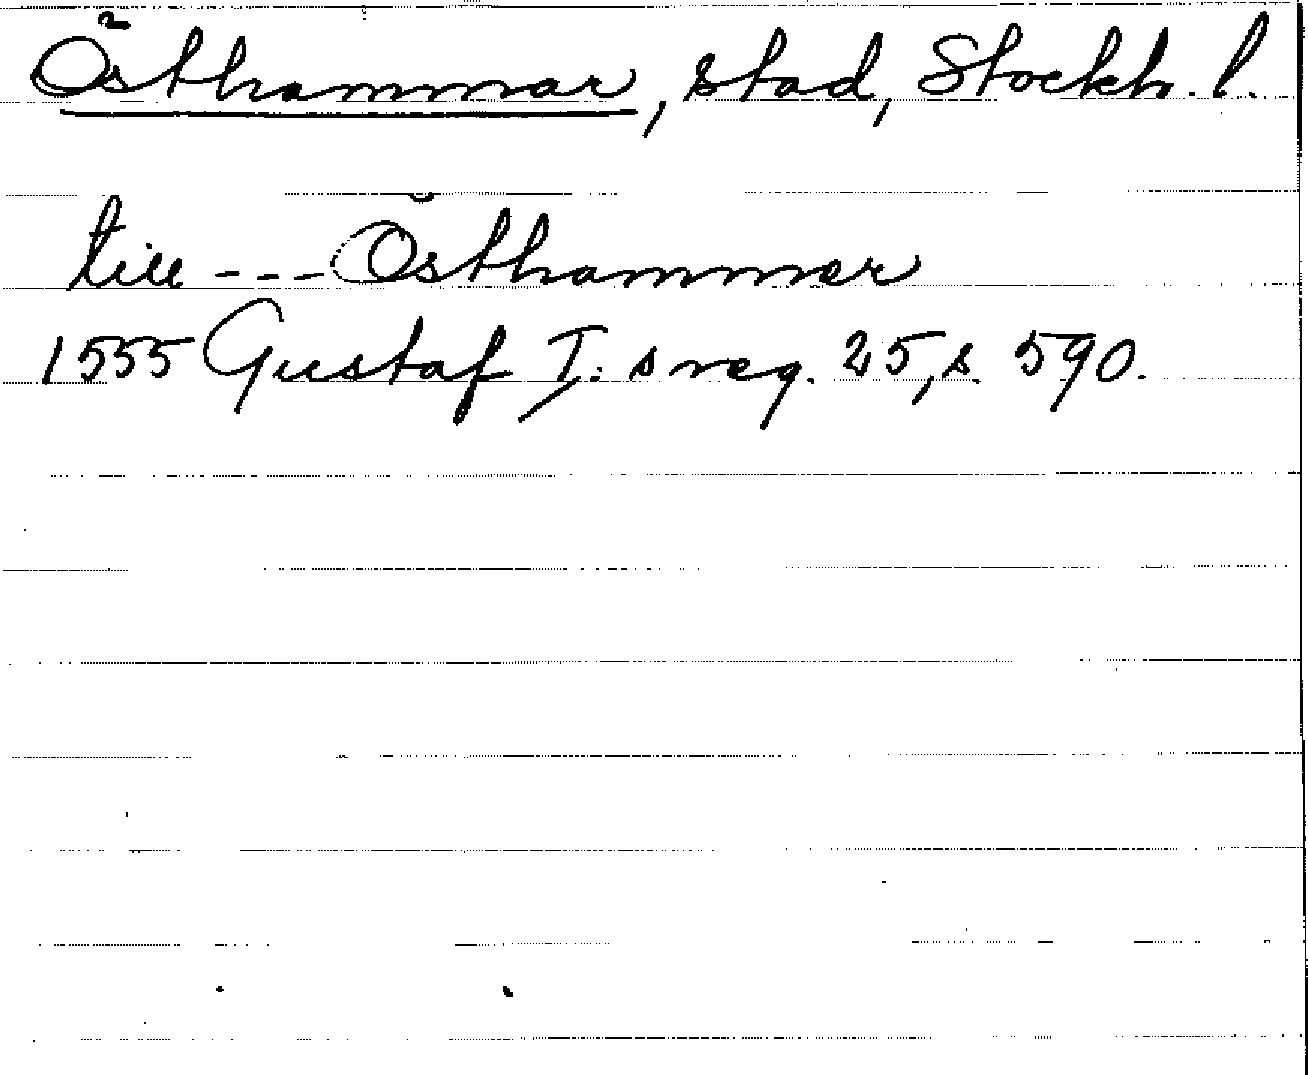 Östhammar, stad, Stockh. l.
till --- Östhammer
1555 Gustaf I: s reg. 25, s. 590.